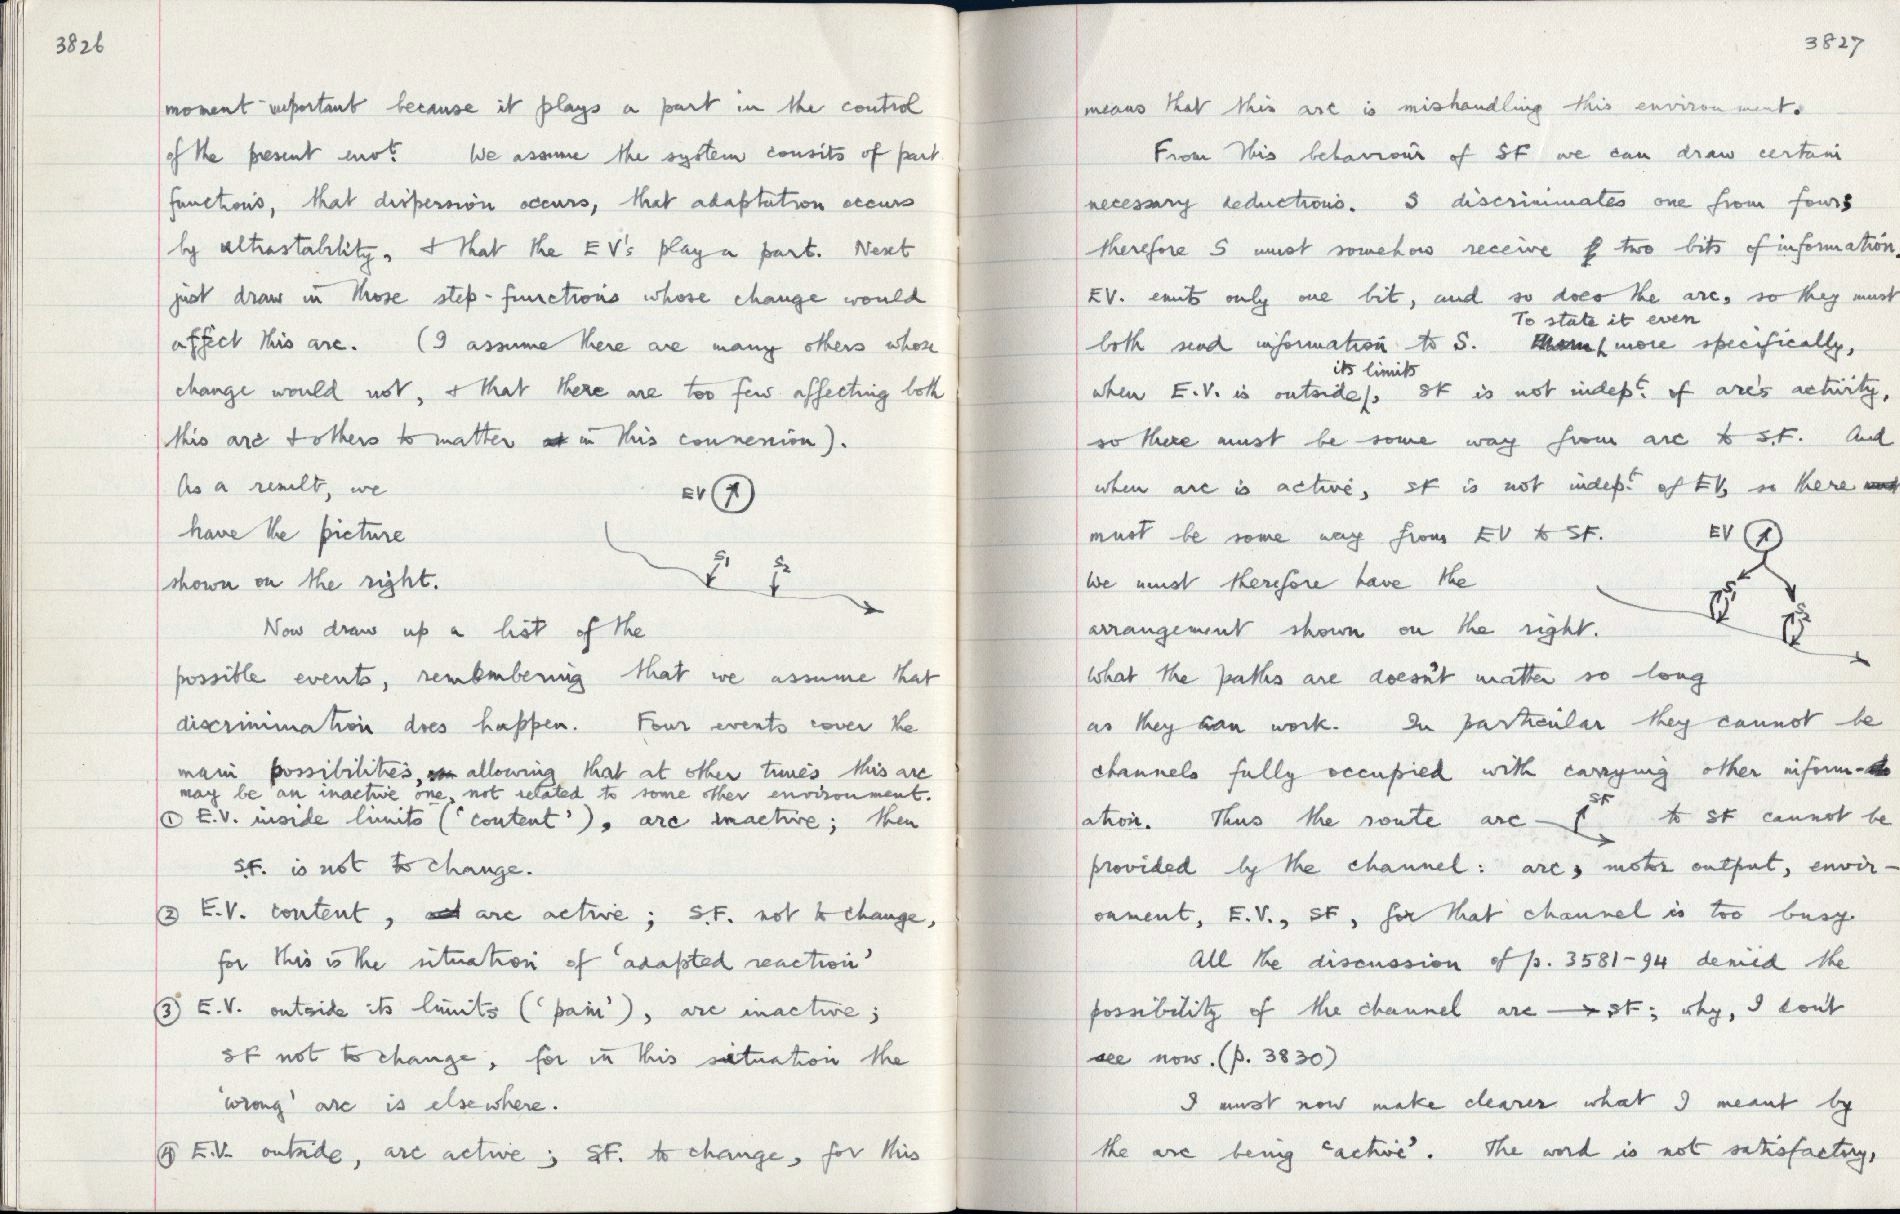 3826
moment important because it plays a part in the control
of the present envt. We assume the system consits of part
functions, that dispersion occurs, that adaptation occurs
by ultrastability, & that the EV's play a part. Next
just draw in those step-functions whose change would
affect this arc. (I assume there are many others whose
change would not, & that there are too few affecting both
this arc & others to matter in this connexion).
As a result, we
EV
have the picture
S1 S2
shown on the right.
Now draw up a list of the
possible events, remembering that we assume that
discrimination does happen. Four events cover the
main possibilities, allowing that at other times this arc
may be an inactive one, not related to some other environment.
① E.V. inside limits ('content'), arc inactive; then
S.F. is not to change.
② E.V. content, arc active; S.F. not to change,
for this is the situation of 'adapted reaction'
③ E.V. outside its limits ('pain'), arc inactive;
SF not to change, for in this situation the
'wrong' arc is elsewhere.
④ E.V. outside, arc active; SF. to change, for this
3827
means that this arc is mishandling this environment.
From this behaviour of SF we can draw certain
necessary deductions. S discriminates one from four;
therefore S must somehow receive two bits of information.
EV. emits only one bit, and so does the arc, so they must
To state it even
both send information to S. more specifically,
its limits
when E.V. is outside, SF is not indept. of arc's activity,
so there must be some way from arc to S.F. And
when arc is active, SF is not indept. of EV, so there
must be some way from EV to SF.
EV
We must therefore have the
S1
S2
arrangement shown on the right.
What the paths are doesn't matter so long
as they can work. In particular they cannot be
channels fully occupied with carrying other inform-
SF
ation. Thus the route arc to SF cannot be
provided by the channel: arc, motor output, envir-
onment, E.V., SF, for that channel is too busy.
All the discussion of p. 3581-94 denied the
possibility of the channel arc → SF; why, I don't
see now. (p. 3830)
I must now make clearer what I meant by
the arc being 'active'. The word is not satisfactory,